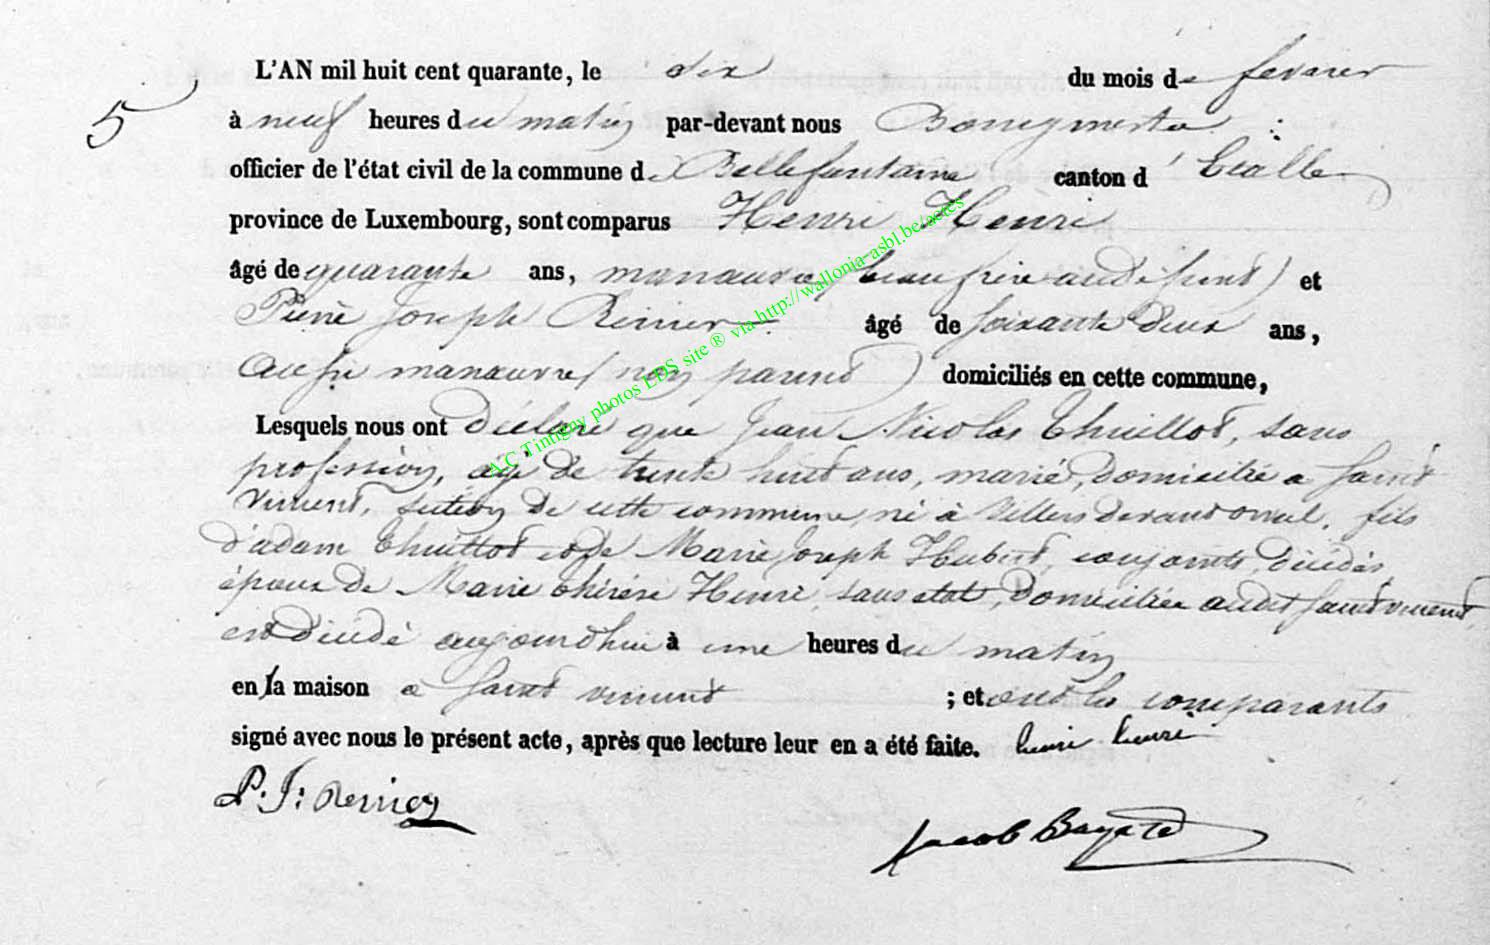 L'AN mil huit cent quarante, le dix du mois de fevrier
5
à neuf heures du matin par-devant nous Bourgmestre
officier de l'état civil de la commune de Bellefontaine canton d'Etalle
province de Luxembourg, sont comparus Henri Henri
âgé de quarante ans, manœuvre (beau frère au défunt) et
Pierre Joseph Reinier âgé de soixante deux ans,
aussi manœuvre (non parent) domiciliés en cette commune,
Lesquels nous ont déclaré que Jean Nicolas Thuillot, sans
profession, agé de trente huit ans, marié, domicilié a Saint
Vincent, section de cette commune, né à Villers devant orval, fils
d'adam Thuillot et de Marie Joseph Hubert, conjoints, décédés,
époux de Marie thérèse Henri, sans etat, domiciliée audit Saint vincent,
est décédé aujourd'hui à une heures du matin
en la maison a Saint vincent ; et ont les comparants
signé avec nous le présent acte, après que lecture leur en a été faite. henri henri
P. J: Renier
Jacob Bayard
A.C Tintigny photos LDS site ® via http://wallonia-asbl.be/actes